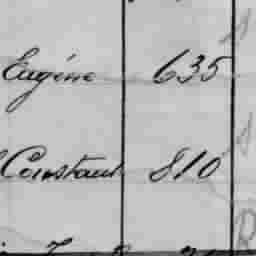 Eugène 635
Constant 810